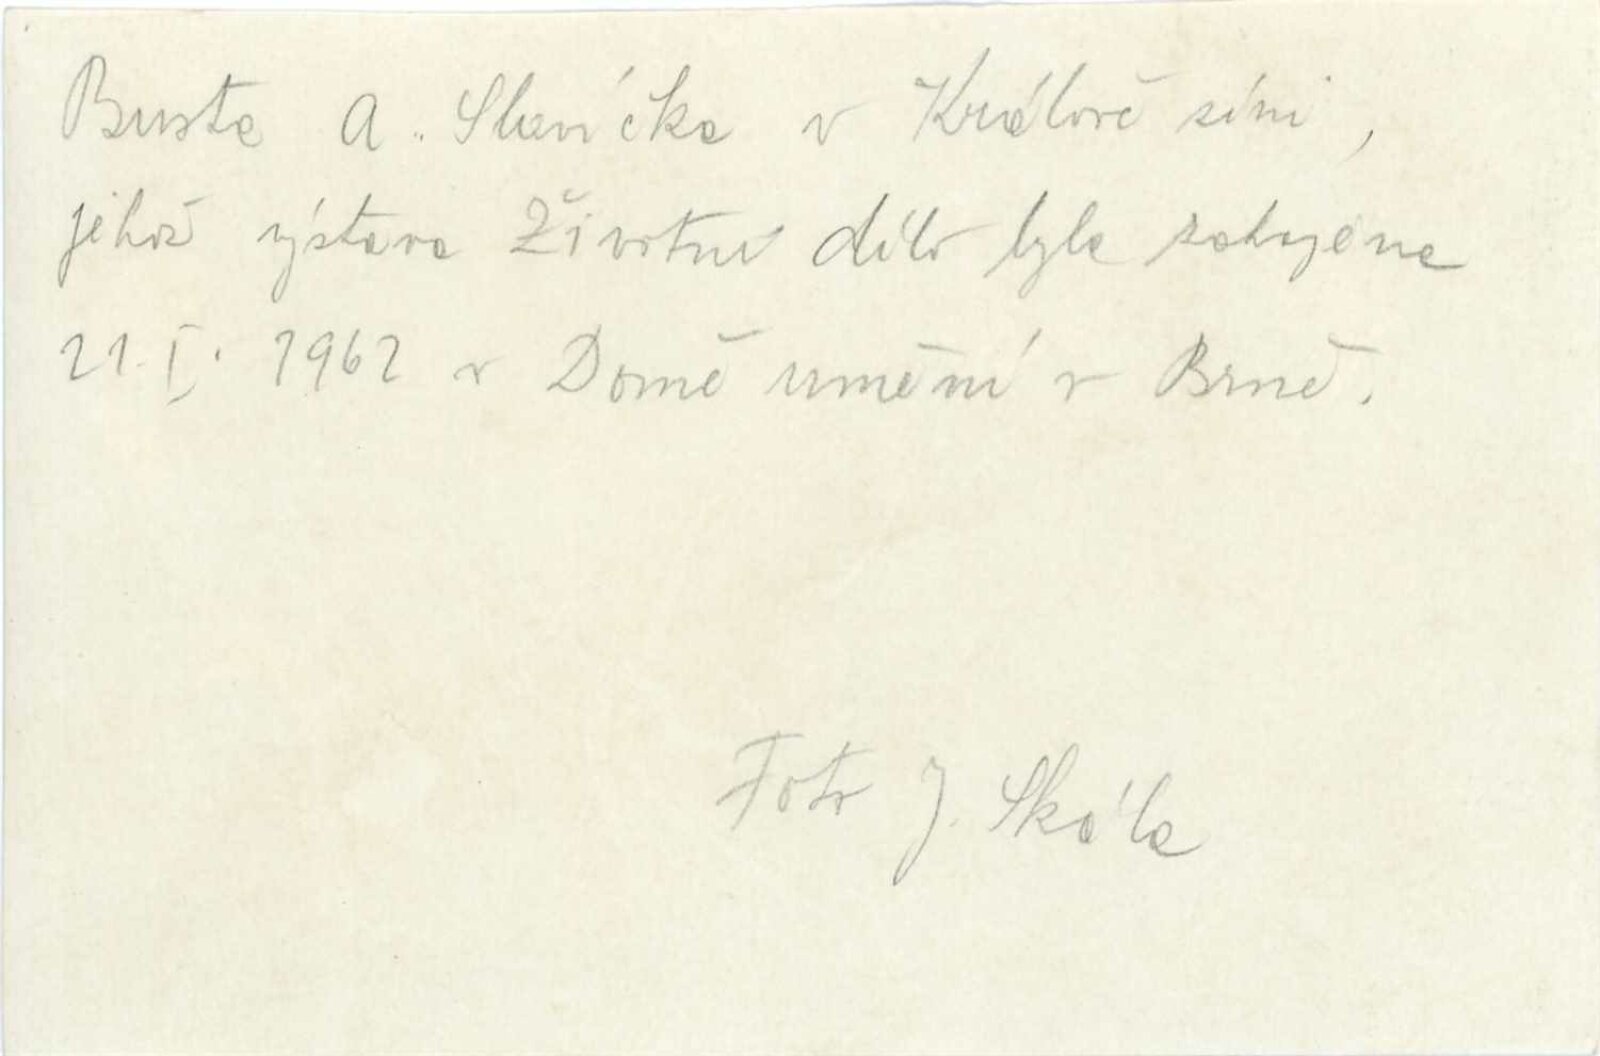 Busta A. Slavíčka v Králově síni,
jehož výstava Životní dílo byla zahájena
21. I. 1962 v Domě umění v Brně.
Foto J. Skála